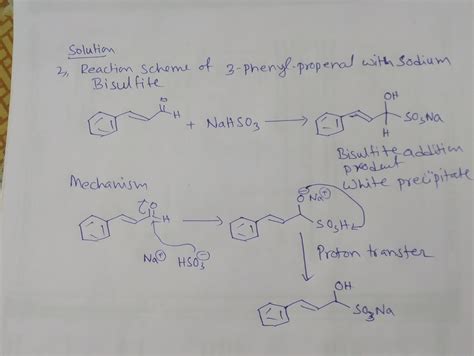 Solution
2, Reaction scheme of 3-phenyl-propenal with Sodium
Bisulfite
O
H
+ NaHSO3
OH
SO3Na
H
Bisulfite addition
product
White precipitate
Mechanism
O
H
Na⊕ HSO3⊖
O⊖ Na⊕
SO3H
Proton transfer
OH
SO3Na